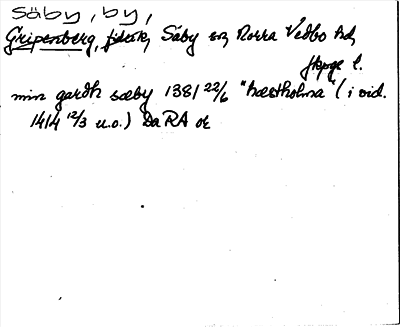 Säby, by,
Gripenberg, Säby sn Norra Vedbo hd,
l.
min gardh sæby 1381 22/6 "hæstholma" (i vid.
1414 12/3 u.o.) Da RA or